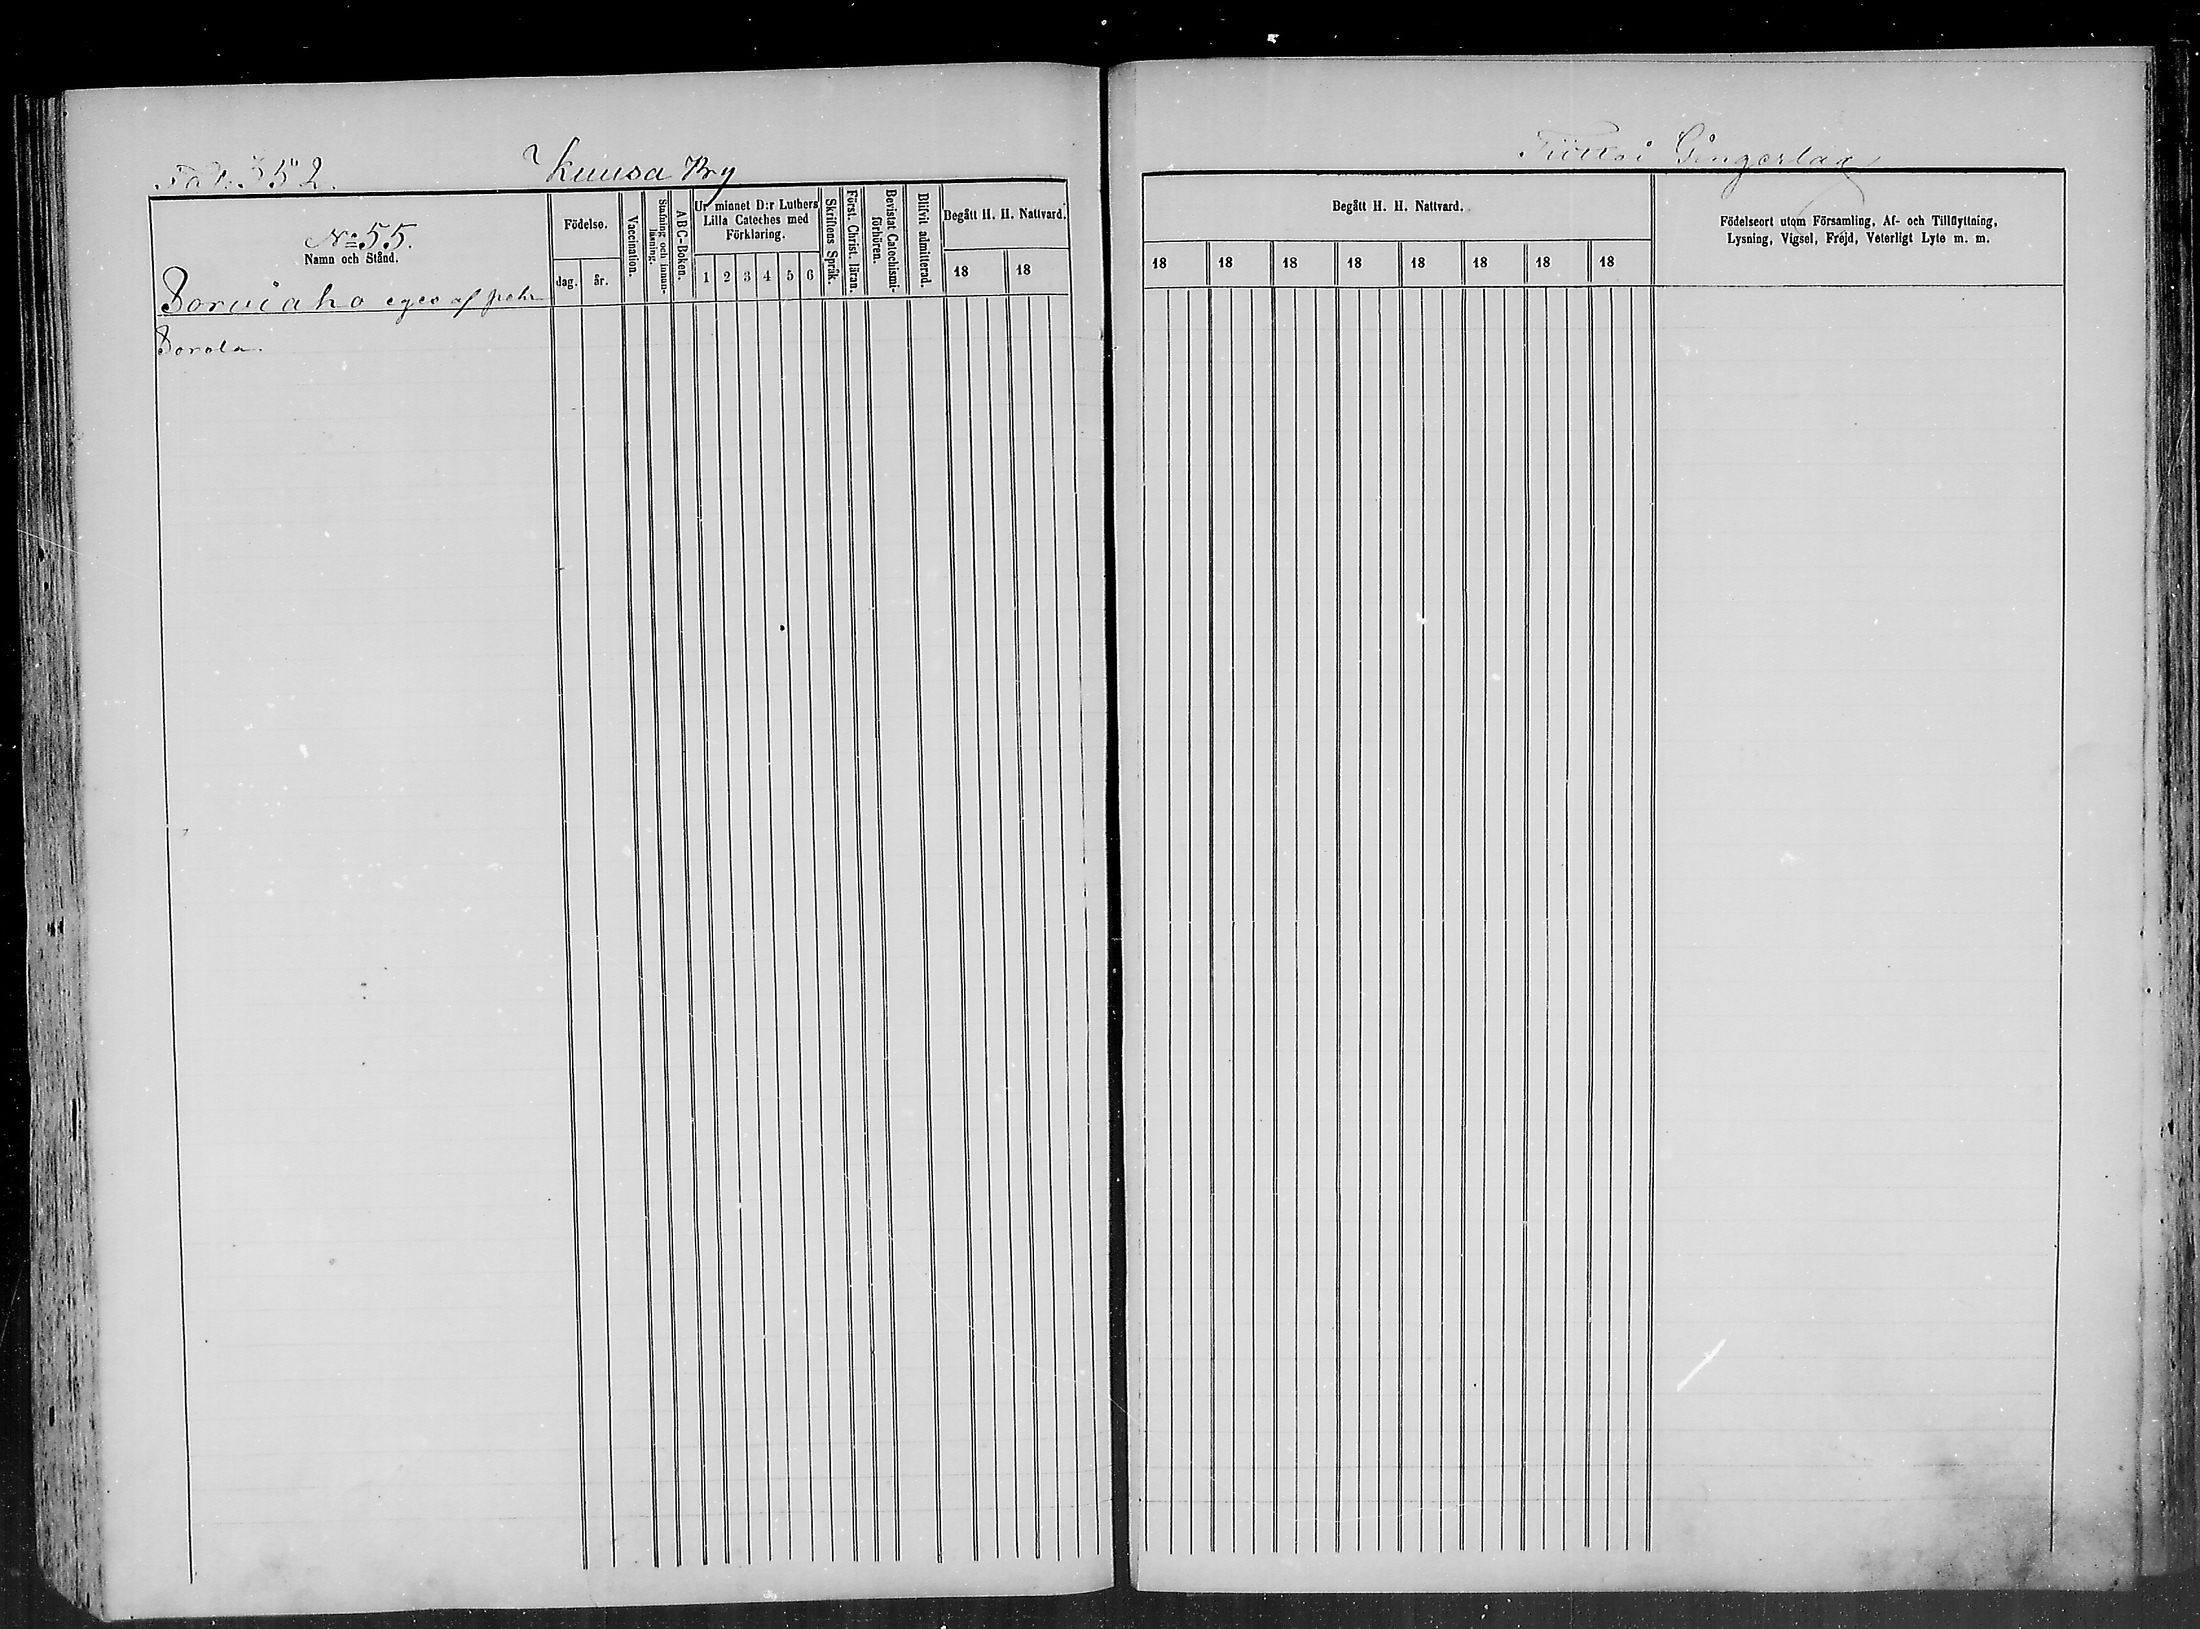 Fol. 552.
Kuusa By
No 55.
Namn och Stånd.
Födelse.
dag.
år.
Vaccination.
Stafning och innan-
läsning.
ABC-Boken.
Ur minnet D:r Luthers
Lilla Cateches med
Förklaring.
1 2 3 4 5 6
Skriftens Språk.
Först. Christ. läran.
Bevistat Catechismi-
förhören.
Blifvit admitterad.
Begått H. H. Nattvard.
18 18
Porviaho eges af pehr
Porola.
Gångerlag
Begått H. H. Nattvard.
18 18 18 18 18 18 18 18
Födelseort utom Församling, Af- och Tillflyttning,
Lysning, Vigsel, Frejd, Veterligt Lyte m. m.